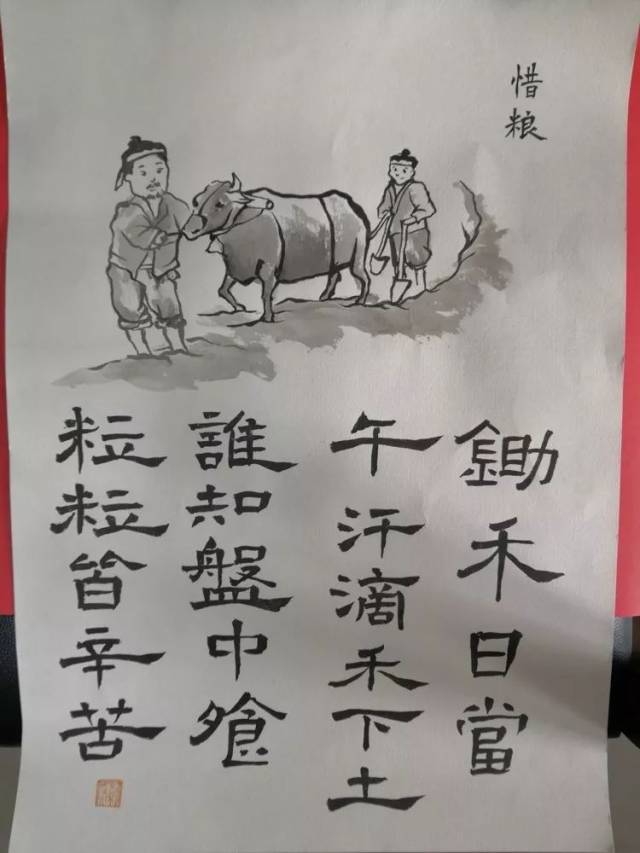 惜粮
鋤禾日當
午汗滴禾下土
誰知盤中飧
粒粒皆辛苦